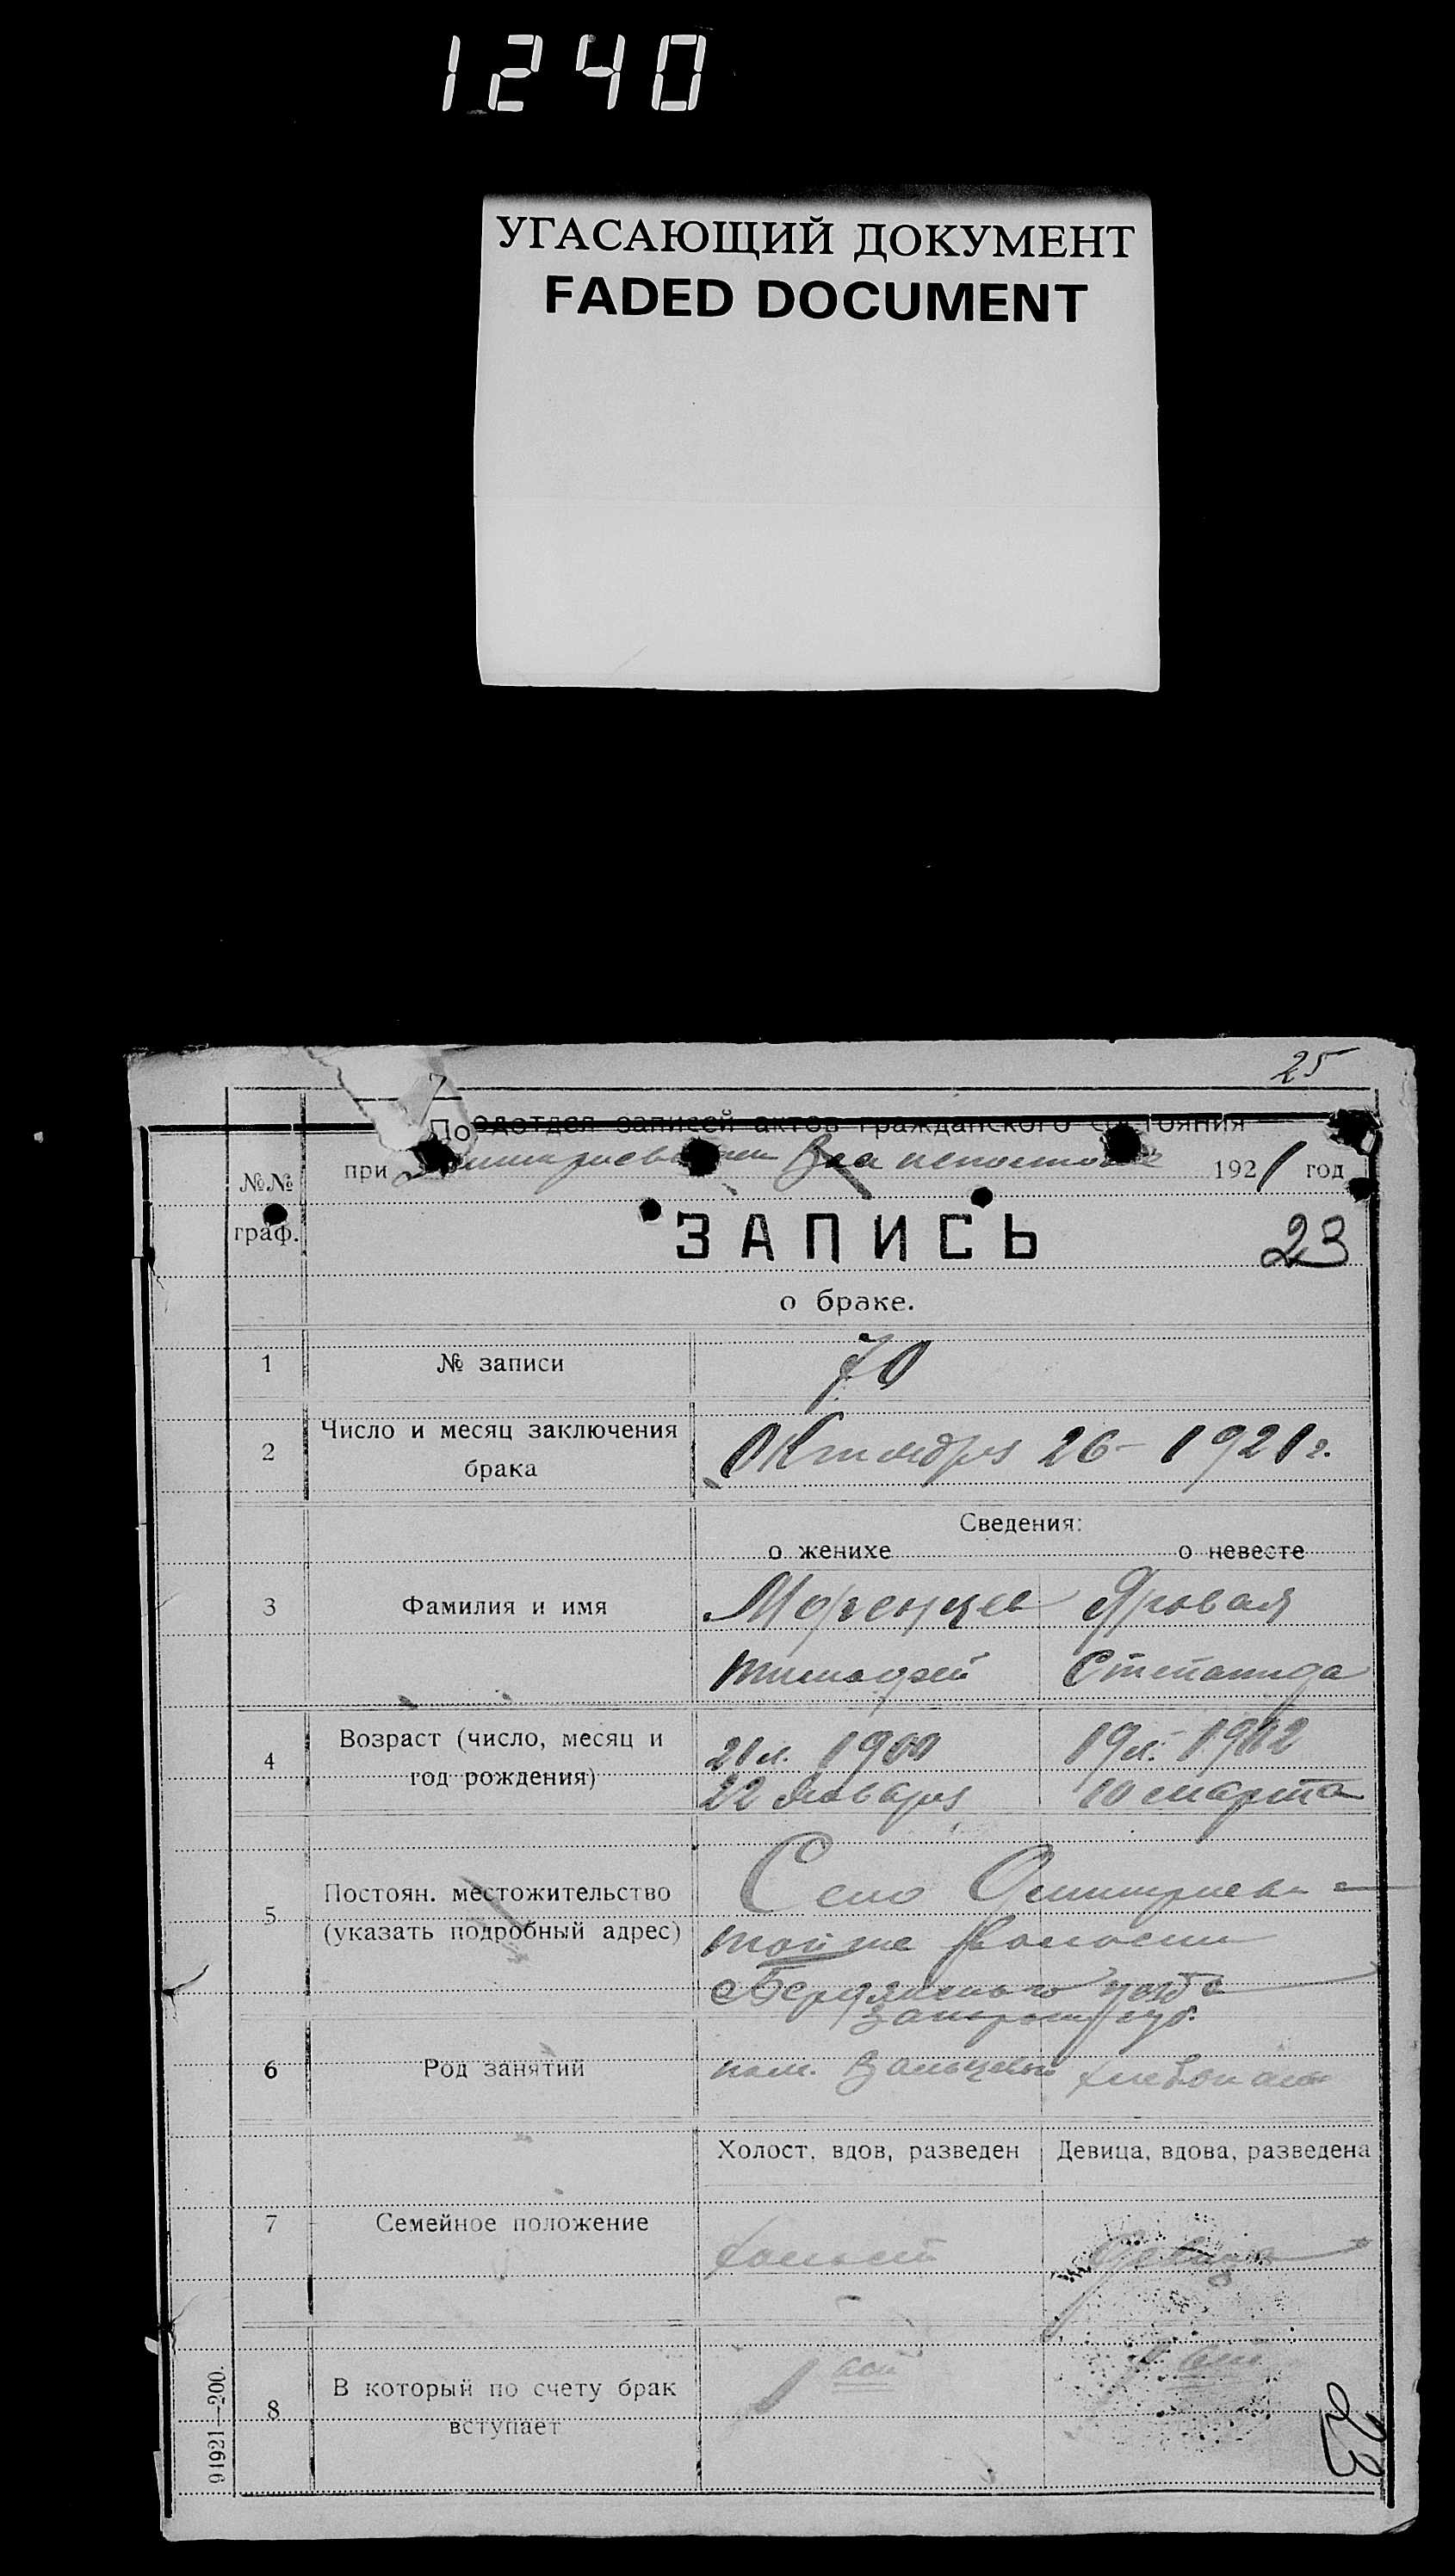 1240
УГАСАЮЩИЙ ДОКУМЕНТ
FADED DOCUMENT
25
Подотдел записей актов гражданского состояния
№№ граф.
при 1921 год
ЗАПИСЬ 23
о браке.
1 № записи 70
2 Число и месяц заключения брака Октября 26 – 1921 г.
Сведения:
о женихе о невесте
3 Фамилия и имя Яровая
Тимофей Степанида
4 Возраст (число, месяц и 21 л. 1900 19 л. 1902
год рождения) 22 Января 10 марта
5 Постоян. местожительство Село
(указать подробный адрес) той же волости
Бердянского уезда
губ.
6 Род занятий хлебопаш
Холост, вдов, разведен Девица, вдова, разведена
7 Семейное положение холост девица
8 В который по счету брак 1 ый 1 ый
вступает
91921—200.
23